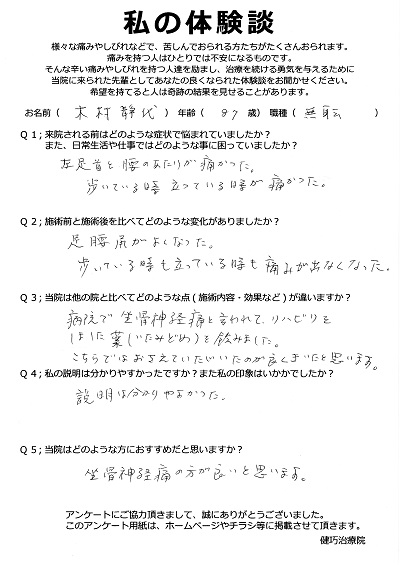 私の体験談
様々な痛みやしびれなどで、苦しんでおられる方たちがたくさんおられます。
痛みを持つ人はひとりでは不安になるものです。
そんな辛い痛みやしびれを持つ人達を励まし、治療を続ける勇気を与えるために
当院に来られた先輩としてあなたの良くなられた体験談をお聞かせください。
希望を持てると人は奇跡の結果を見せることがあります。
お名前（ 木村静代 ）年齢（ 87 歳）職種（ 無職 ）
Q１；来院される前はどのような症状で悩まれていましたか？
また、日常生活や仕事ではどのような事に困っていましたか？
左足首と腰のあたりが痛かった。
歩いている時立っている時が痛かった。
Q２；施術前と施術後を比べてどのような変化がありましたか？
足腰尻がよくなった。
歩いている時も立っている時も痛みが出なくなった。
Q３；当院は他の院と比べてどのような点(施術内容・効果など)が違いますか？
病院で坐骨神経痛と言われて、リハビリを
しました薬(いたみどめ)を飲みました。
こちらではおさえていただいたのが良くきいたと思います。
Q４；私の説明は分かりやすかったですか？また私の印象はいかかでしたか？
説明は分かりやすかった。
Q５；当院はどのような方におすすめだと思いますか？
坐骨神経痛の方が良いと思います。
アンケートにご協力頂きまして、誠にありがとうございました。
このアンケート用紙は、ホームページやチラシ等に掲載させて頂きます。
健巧治療院